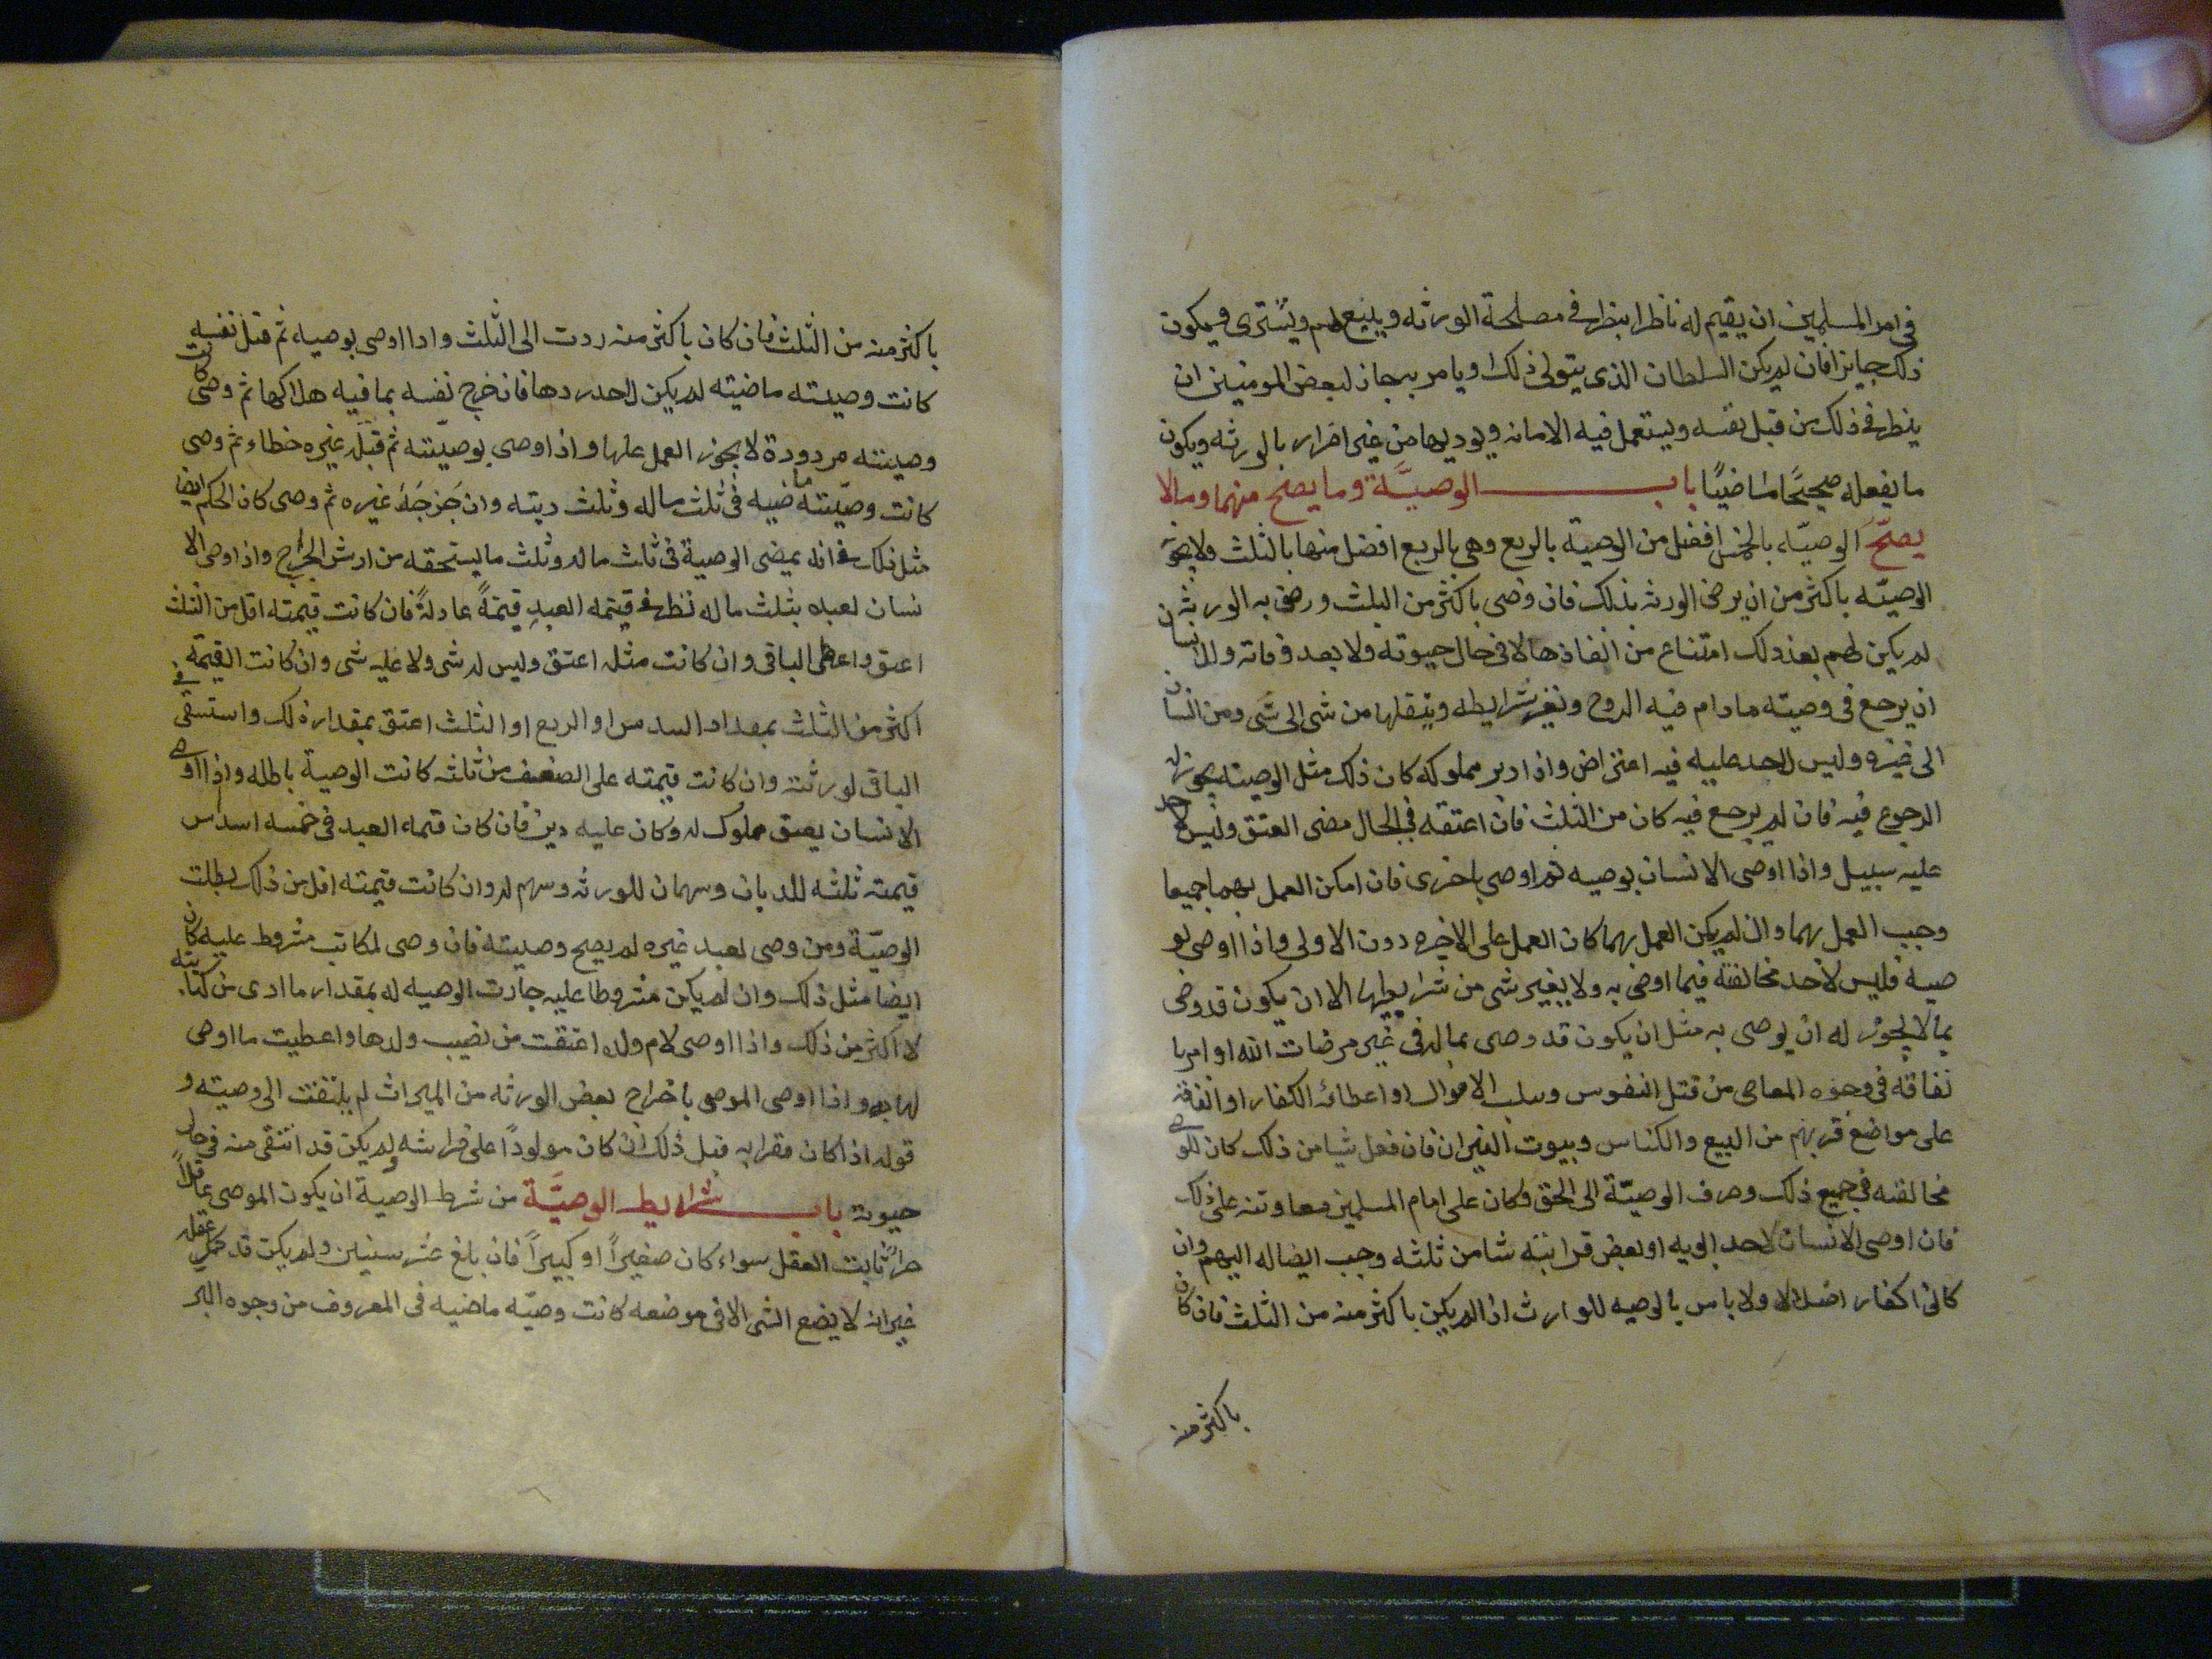 في امر المسلمين ان يقيم له ناظرا ينظر في مصلحة الورثه ويبيع لهم ويشترى فيكون
ذلك جايزا فان لم يكن السلطان الذى يتولى ذلك او يامر به جاز لبعض المومنين ان
ينظر في ذلك من قبل نفسه ويستعمل فيه الامانه ويوديها من غير اضرار بالورثه ويكون
ما يفعله صحيحًا ماضيًا باب الوصيَّة وما يصح منها وما لا
يصحّ الوصيّه بالخمس افضل من الوصية بالربع وهى بالربع افضل منها بالثلث ولا يجوز
الوصيّه باكثر من ان يرضى الورثه بذلك فان وصى باكثر من الثلث ورضى به الورثه
لم يكن لهم بعد ذلك امتناع من انفاذها لا في حال حيوته ولا بعد وفاته وللانسان
ان يرجع في وصيته ما دام فيه الروح ويغير شرايطه وينقلها من شى الى شى ومن انسان
الى غيره وليس لاحد عليه فيه اعتراض واذا دبر مملوكه كان ذلك مثل الوصيته يجوز له
الرجوع فيه فان لم يرجع فيه كان من الثلث فان اعتقه في الحال مضى العتق وليس لاحد
عليه سبيل واذا اوصى الانسان بوصيه ثم اوصى باخرى فان امكن العمل بهما جميعا
وجب العمل بهما وان لم يكن العمل بهما كان العمل على الاخيره دون الاولى واذا اوصى بو
صية فليس لاحد مخالفته فيما اوصى به ولا يغير شى من شرايطها الا ان يكون قد وصى
بما لا يجوز له ان يوصى به مثل ان يكون قد وصى بماله في غير مرضات الله او امر با
نفاقه في وجوه المعاصى من قتل النفوس وسلب الاموال او اعطائه الكفار او انفاقه
على مواضع قربهم من البيع والكنايس وبيوت النيران فان فعل شيا من ذلك كان للوصى
مخالفته في جميع ذلك وصرف الوصيّة الى الحق وكان على امام المسلمين معاونته على ذلك
فان اوصى الانسان لاحد ابويه او بعض قرابته شا من ثلثه وجب ايضاله اليهم وان
كانوا كفار اضلالا ولا باس بالوصيه للوارث اذا لم يكن باكثر منه من الثلث فان كان
باكثر منه
باكثر منه من الثلث فان كان باكثر منه ردت الى الثلث واذا اوصى بوصيه ثم قتل نفسه كانت
كانت وصيته ماضيته لم يكن لاحد ردها فان جرح نفسه بما فيه هلاكها ثم وصى
وصيته مردودة لا يجوز العمل عليها واذا اوصى بوصيّته ثم قتله غيره خطاء ثم وصى
كانت وصيّته ماضيه في ثلث ماله وثلث ديته وان جَرَحَهُ غيره ثم وصى كان الحكم ايضا
مثل ذلك في انه يمضى الوصية في ثلث ماله وثلث ما يستحقه من ارش الجراح واذا وصى الا
نسان لعبده بثلث ماله نظر في قيتمه العبدِ قيتمةً عادلةً فان كانت قيمته اقل من الثلث
اعتق واعطى الباقى وان كانت مثله اعتق وليس له شى ولا عليه شى وان كانت القيمة
اكثر من الثلث بمقدار السدس او الربع او الثلث اعتق بمقدار ذلك واستسقى في
الباقى لورثته وان كانت قيمته على الضعف من ثلثه كانت الوصية باطله واذا اوصى
الانسان بعتق مملوك له وكان عليه دين فان كان قتمه العبد في خمسه اسدس
قيمته ثلثه للديان وسهمان للورثه وسهم له وان كانت قيمته اقل من ذلك بطلت
الوصيّة ومن وصى لعبد غيره لم يصح وصيته فان وصى لمكاتب مشروط عليه كان
ايضا مثل ذلك وان لم يكن مشروطا عليه جازت الوصيه له بمقدار ما ادى من كتابته
لا اكثر من ذلك واذا اوصى لام ولده اعتقت من نصيب ولدها واعطيت ما اوصى
لها به واذا اوصى الموصى باخراج بعض الورثه من الميراث لم يلتفت الى وصيته و
قوله اذا كان مقرا به قبل ذلك ان كان مولودًا على فراشه ولم يكن قد انتفى منه في حال
حيوته باب شرايط الوصيَّة من شرط الوصية ان يكون الموصى عاقلاً
حرا ثابت العقل سواء كان صغيراً او كبيراً فان بلغ عشر سنين ولم يكن قد كمل عقله
غير انه لا يضع الشى الا في موضعه كانت وصيّه ماضيه في المعروف من وجوه البر